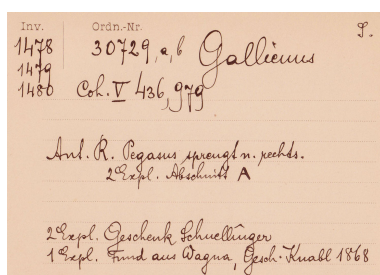 Inv. Ordn.-Nr. S.
1478 30729, a, b Gallienus
1479
1480 Coh. V 436, 979
Ant. R. Pegasus sprengt n. rechts.
2 Expl. Abschnitt A
2 Expl. Geschenk Schnellinger
1 Expl. Fund aus Wagna, Gesch. Knabl 1868